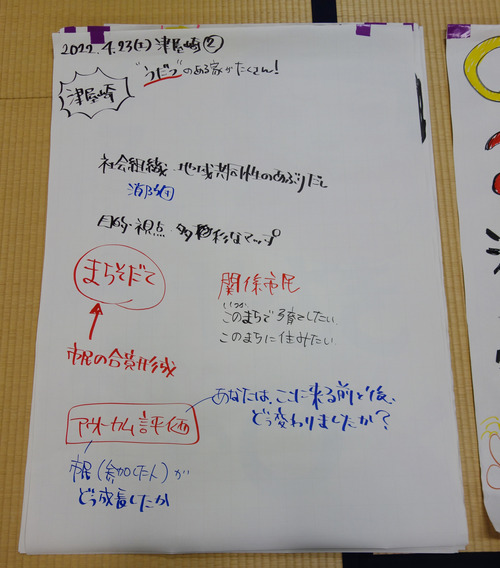 2022.4.23(土) 津屋崎②
津屋崎
"うだつ"のある家がたくさん！
社会組織 地域共同性のあぶりだし
消防団
目的・視点 多彩なマップ
まちそだて
市民の合意形成
関係市民
いつか
このまちで子育てしたい。
このまちに住みたい。
アウトカム評価
あなたは、ここに来る前と後、
どう変わりましたか？
市民（参加した人）が
どう成長したか